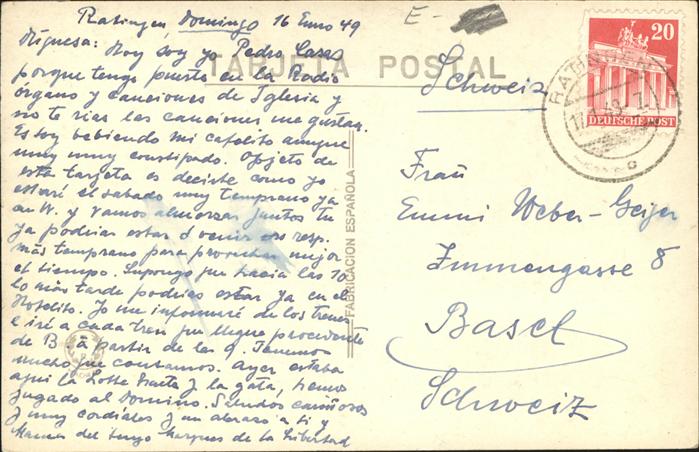 Ratingen, Domingo 16 Enero 49
Miguesa: Hoy soy yo Pedro Casas
porque tengo puesta en la Radio
órgano y canciones de Iglesia y
no te rías las canciones me gustan.
Estoy bebiendo mi cafelito aunque
muy muy constipado. Objeto de
esta tarjeta es decirte como yo
estaré el sabado muy temprano ya
en W. y vamos almorzar juntos tu
ya podrias estar o venir eso resp.
más temprano para provechar mejor
el tiempo. Supongo que hacia las 10
lo más tarde podrias estar ya en el
Hotelito. Yo me informaré de los trenes
e iré a cada tren que llegue procedente
de B a partir de las 9. Tenemos
mucho que contarnos. Ayer estaba
aqui la Lotte y la gata, hemos
jugado al Domino. Saludos cariñosos
y muy cordiales y un abrazo a ti y
Mama del Marques de la Libertad
E-
TARJETA POSTAL
FABRICACION ESPAÑOLA
Schweiz
20
DEUTSCHE POST
RATINGEN
Frau
Emmi Weber-Geiger
Immengasse 8
Basel
Schweiz